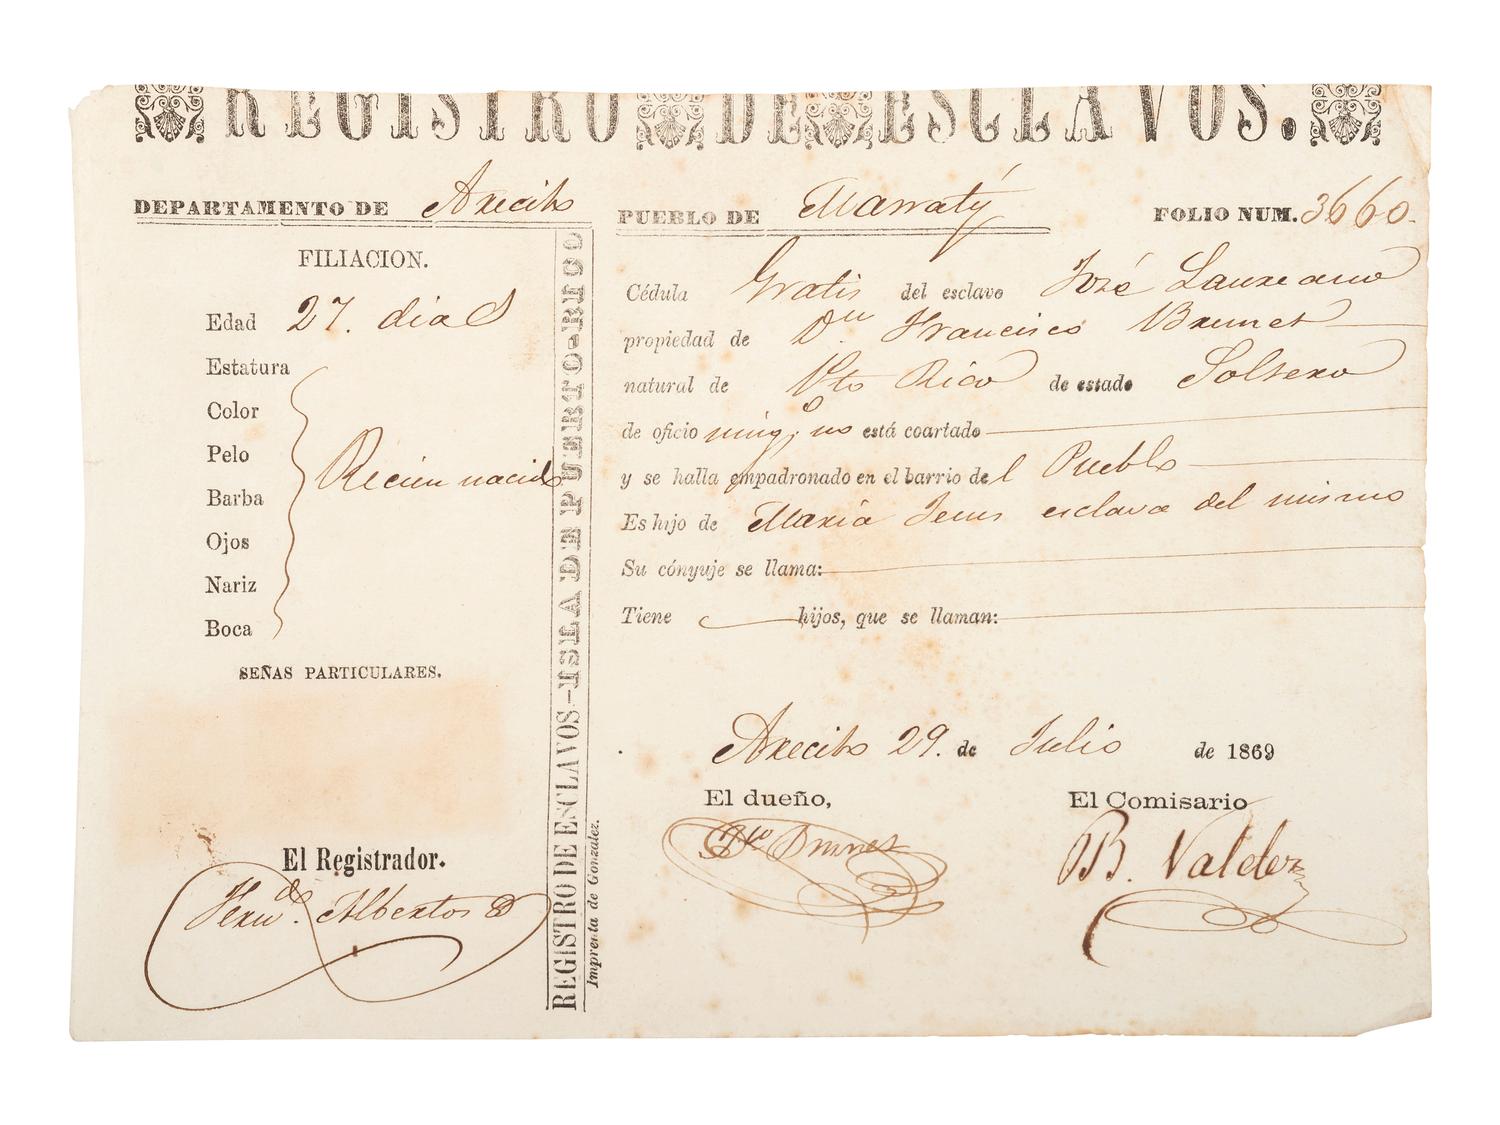 REGISTRO DE ESCLAVOS.
DEPARTAMENTO DE Arecibo
PUEBLO DE Manatý
FOLIO NUM. 3660.
FILIACION.
Edad 27. dias
Estatura
Color
Pelo
Barba
Ojos
Nariz
Boca
Recien nacido
SEÑAS PARTICULARES.
El Registrador.
Fernd. Albertos
REGISTRO DE ESCLAVOS—ISLA DE PUERTO-RICO
Imprenta de Gonzalez.
Cédula Gratis del esclavo José Laureano
propiedad de Dn Francisco Brunet
natural de Pto Rico de estado Soltero
de oficio ningo, no está coartado
y se halla empadronado en el barrio del Pueblo
Es hijo de María Jesus esclava del mismo
Su cónyuje se llama:
Tiene hijos, que se llaman:
Arecibo 29. de Julio de 1869
El dueño,
Fco Brunet
El Comisario
B. Valdez